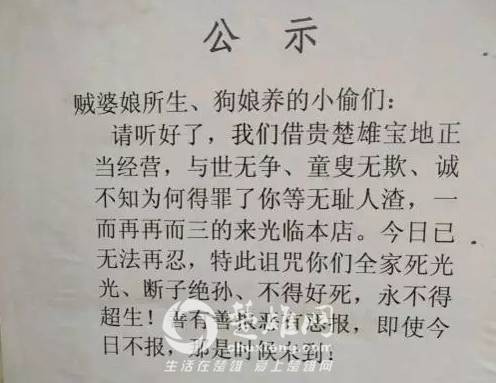 公示
贼婆娘所生、狗娘养的小偷们：
请听好了，我们借贵楚雄宝地正
当经营，与世无争、童叟无欺、诚
不知为何得罪了你等无耻人渣，一
而再再而三的来光临本店。今日已
无法再忍，特此诅咒你们全家死光
光、断子绝孙、不得好死，永不得
超生！善有善报恶有恶报，即使今
日不报，那是时候未到！
楚雄网
chuxiong.com
生活在楚雄 爱上楚雄网